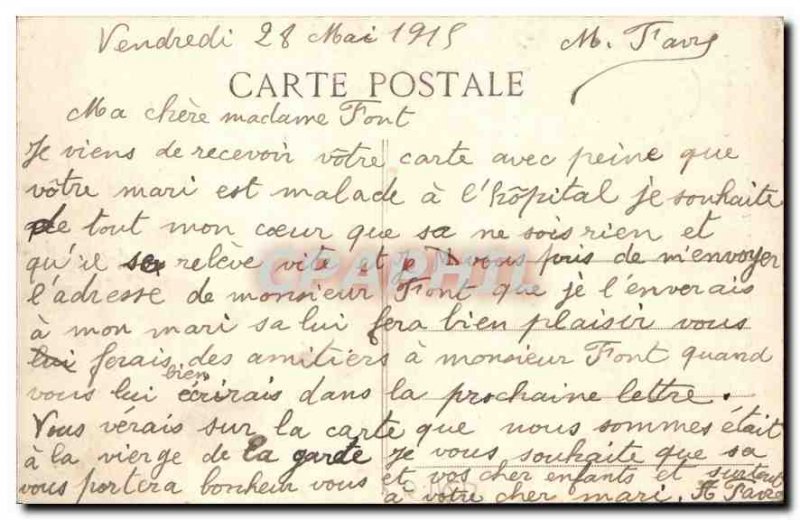 Vendredi 28 Mai 1915 M. Favre
CARTE POSTALE
Ma chère madame Font
Je viens de recevoir vôtre carte avec peine que
vôtre mari est malade à l'hôpital je souhaite
de tout mon cœur que sa ne sois rien et
qu'il se relève vite et je vous pris de m'envoyer
l'adresse de monsieur Font que je l'enverais
à mon mari sa lui fera bien plaisir vous
lui ferais des amitiers à monsieur Font quand
vous lui bien écrirais dans la prochaine lettre.
Vous vérais sur la carte que nous sommes était
à la vierge de la garde je vous souhaite que sa
vous portera bonheur vous et vos cher enfants et surtout
à vôtre cher mari. Favre
CPAPHIL